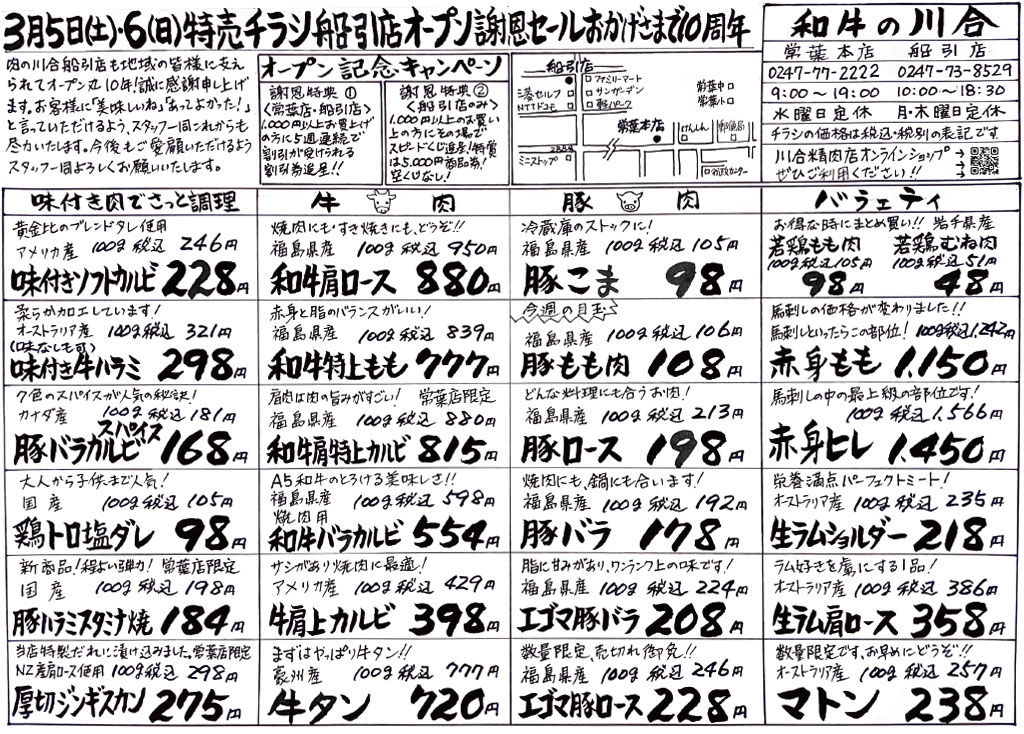 3月5日(土)・6(日)特売チラシ 船引店オープン謝恩セールおかげさまで10周年
肉の川合船引店も地域の皆様に支え
られてオープン丸10年!誠に感謝申し上げ
ます。お客様に「美味しいね」「あってよかった!」
と言っていただけるよう、スタッフ一同これからも
尽力いたします。今後もご愛顧いただけるよう
スタッフ一同よろしくお願いいたします。
オープン記念キャンペーン
謝恩特典①
〈常葉店・船引店〉
1,000円以上お買上げ
の方に5週連続で
割引が受けられる
割引券進呈!!
謝恩特典②
〈船引店のみ〉
1,000円以上のお買い
上の方にその場で
スピードくじ進呈!特賞
は5,000円商品券!
空くじなし!
船引店
ファミリーマート
サンガーデン
三菱セルフ
NTTドコモ
軽パーク
常葉中
常葉小
常葉本店
けんしん
郵便局
288号
ミニストップ
行政センター
和牛の川合
常葉本店 船引店
0247-77-2222 0247-73-8529
9:00~19:00 10:00~18:30
水曜日定休 月・木曜日定休
チラシの価格は税込・税別の表記です
川合精肉店オンラインショップ
ぜひご利用ください!!
味付き肉でさっと調理
黄金比のブレンドタレ使用
アメリカ産 100g税込 246円
味付きソフトカルビ 228円
柔らか加工しています!
オーストラリア産 100g税込 321円
(味なしも可)
味付き牛ハラミ 298円
7色のスパイスが人気の秘訣!
カナダ産 100g税込 181円
スパイス
豚バラカルビ 168円
大人から子供まで人気!
国産 100g税込 105円
鶏トロ塩ダレ 98円
新商品!程よい弾力! 常葉店限定
国産 100g税込 198円
豚ハラミスタミナ焼 184円
当店特製だれに漬け込みました。常葉店限定
NZ産肩ロース使用 100g税込 298円
厚切ジンギスカン 275円
牛肉
焼肉にも・すき焼きにも、どうぞ!!
福島県産 100g税込 950円
和牛肩ロース 880円
赤身と脂のバランスがいい!
福島県産 100g税込 839円
和牛特上もも 777円
肩肉は肉の旨みがすごい! 常葉店限定
福島県産 100g税込 880円
和牛肩特上カルビ 815円
A5和牛のとろける美味しさ!!
福島県産 100g税込 598円
焼肉用
和牛バラカルビ 554円
サシがあり焼肉に最適!
アメリカ産 100g税込 429円
牛肩上カルビ 398円
まずはやっぱり牛タン!!
豪州産 100g税込 777円
牛タン 720円
豚肉
冷蔵庫のストックに!
福島県産 100g税込 105円
豚こま 98円
今週の目玉
福島県産 100g税込 106円
豚もも肉 108円
どんな料理にも合うお肉!
福島県産 100g税込 213円
豚ロース 198円
焼肉にも、鍋にも合います!
福島県産 100g税込 192円
豚バラ 178円
脂に甘みがあり、ワンランク上の味です!
福島県産 100g税込 224円
エゴマ豚バラ 208円
数量限定、売切れ御免!!
福島県産 100g税込 246円
エゴマ豚ロース 228円
バラエティ
お得な時にまとめ買い!! 岩手県産
若鶏もも肉 若鶏むね肉
100g税込105円 100g税込51円
98円 48円
馬刺しの価格が変わりました!!
馬刺しといったらこの部位! 100g税込1,242円
赤身もも 1,150円
馬刺しの中の最上級の部位です!
100g税込 1,566円
赤身ヒレ 1,450円
栄養満点パーフェクトミート!
オーストラリア産 100g税込 235円
生ラムショルダー 218円
ラム好きを虜にする1品!
オーストラリア産 100g税込 386円
生ラム肩ロース 358円
数量限定です、お早めにどうぞ!!
オーストラリア産 100g税込 257円
マトン 238円